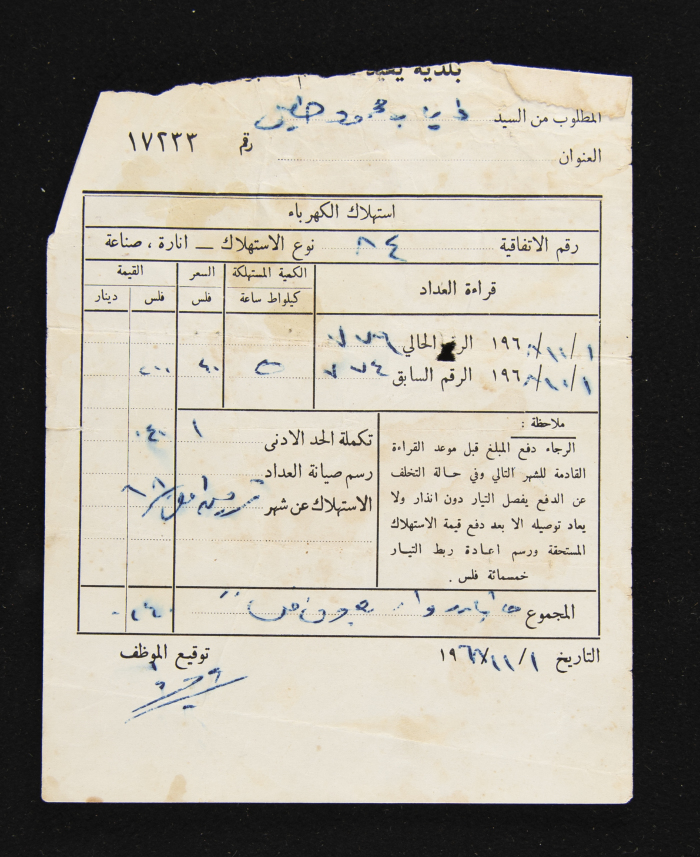 بلدية
المطلوب من السيد محمود
العنوان
رقم ١٧٢٣٣
استهلاك الكهرباء
رقم الاتفاقية ٨٤ نوع الاستهلاك — انارة ، صناعة
قراءة العداد
الكمية المستهلكة
كيلواط ساعة
السعر
فلس
القيمة
فلس دينار
١٩٦ الرقم الحالي ٧٧٩
١٩٦ الرقم السابق ٧٧٤ ٥ ٤٠ ٢٠٠
ملاحظة :
الرجاء دفع المبلغ قبل موعد القراءة
القادمة للشهر التالي وفي حالة التخلف
عن الدفع يفصل التيار دون انذار ولا
يعاد توصيله الا بعد دفع قيمة الاستهلاك
المستحقة ورسم اعادة ربط التيار
خمسمائة فلس .
تكملة الحد الادنى
رسم صيانة العداد
الاستهلاك عن شهر
المجموع
التاريخ ١٩٦٨/١١/١
توقيع الموظف